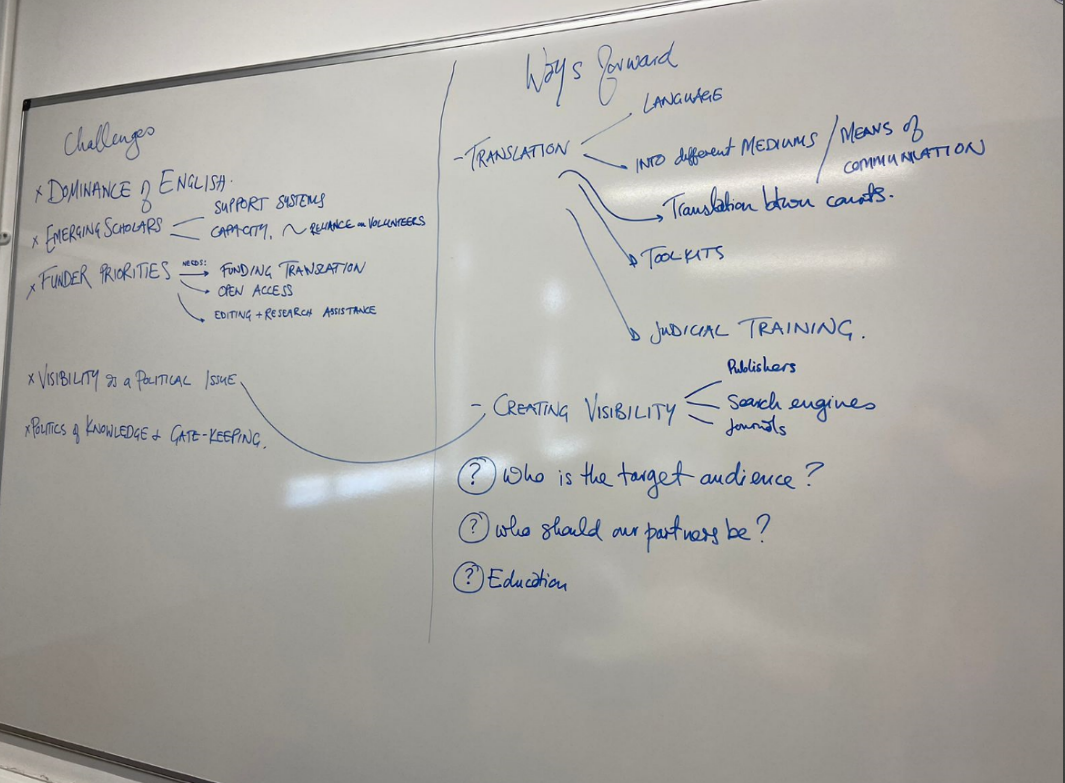 Challenges
x DOMINANCE of ENGLISH.
x EMERGING SCHOLARS
SUPPORT SYSTEMS
CAPACITY, ~ RELIANCE on VOLUNTEERS
x FUNDER PRIORITIES
NEEDS:
FUNDING TRANSLATION
OPEN ACCESS
EDITING + RESEARCH ASSISTANCE
x VISIBILITY is a POLITICAL ISSUE
x POLITICS of KNOWLEDGE & GATE-KEEPING.
Ways forward
- TRANSLATION
LANGUAGE
INTO different MEDIUMS / MEANS of
COMMUNICATION
Translation btwn courts.
TOOLKITS
JUDICIAL TRAINING.
- CREATING VISIBILITY
Publishers
Search engines
Journals
? Who is the target audience?
? who should our partners be?
? Education